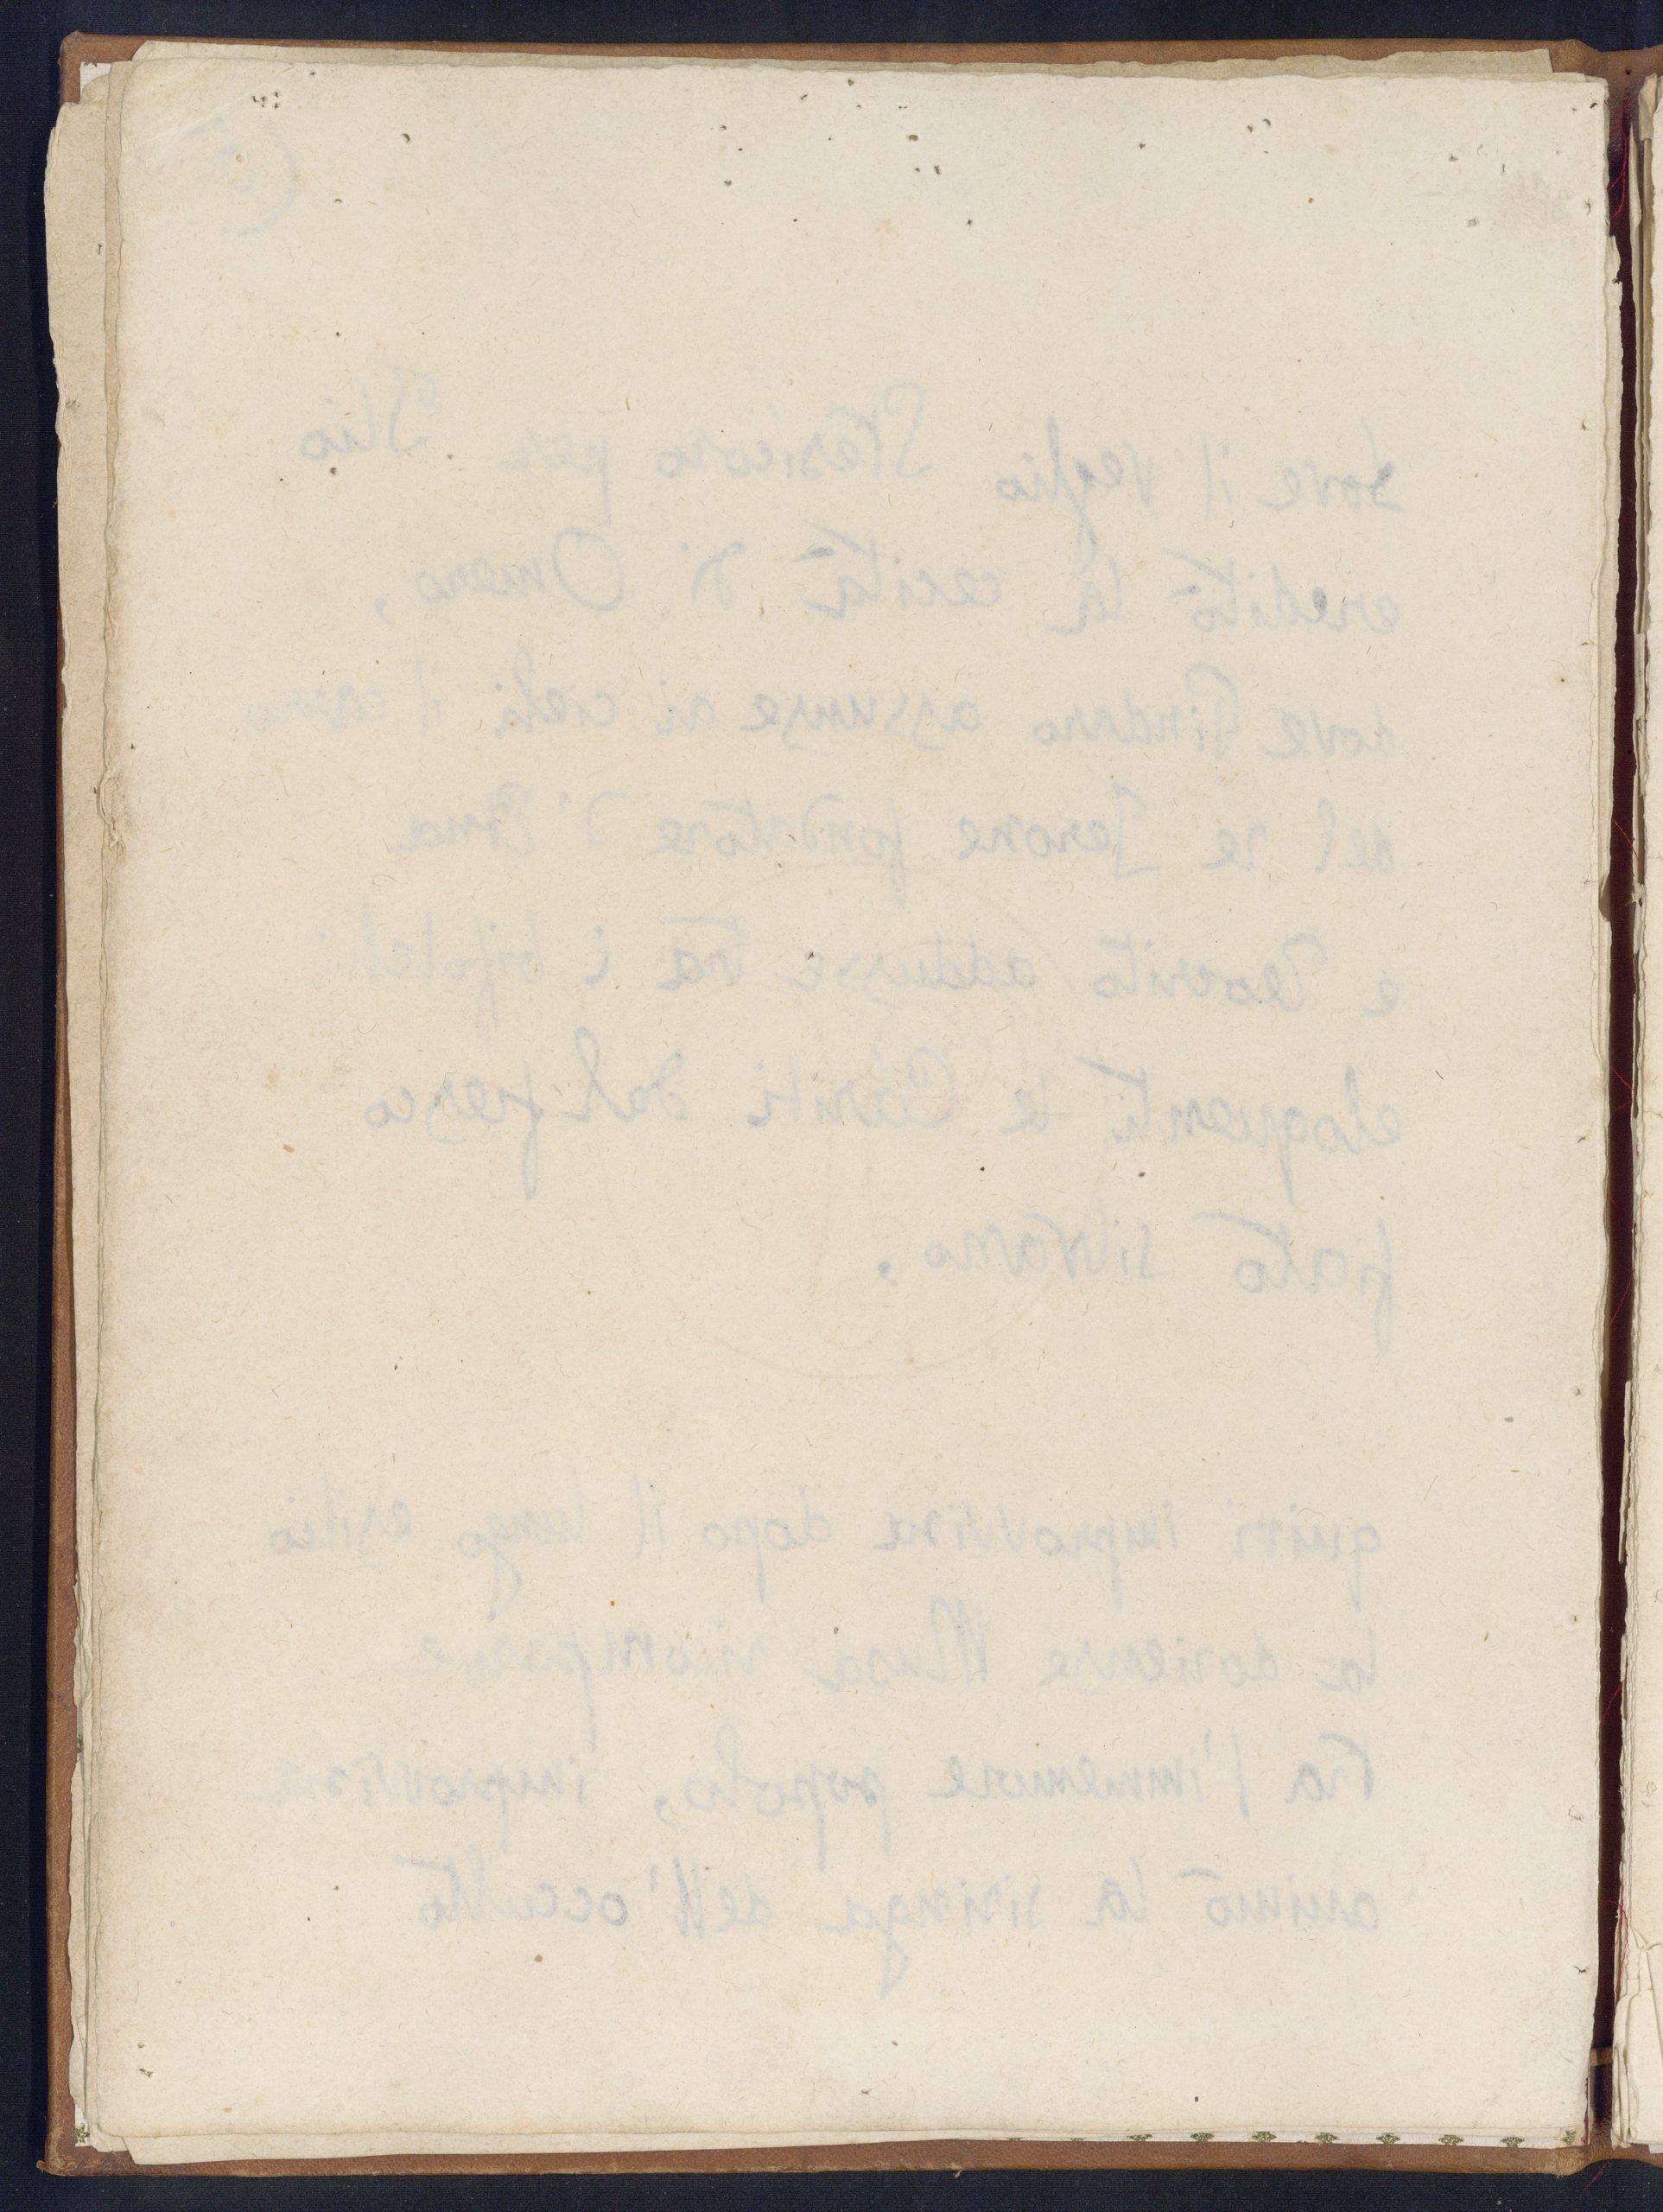 dove il veglio Stesicoro per Ilio
ereditò la cecità di Omero,
dove Pindaro assunse ai cieli il carro
del re Jerone fondatore d'Etna
e Teocrito addusse tra i bifolchi
eloquenti le Càriti dal fresco
fiato silvano,
quivi improvvisa dopo il lungo esilio
la doriense Musa ricomparve
tra l'immemore popolo, improvvisa
animò la siringa dell'occulto